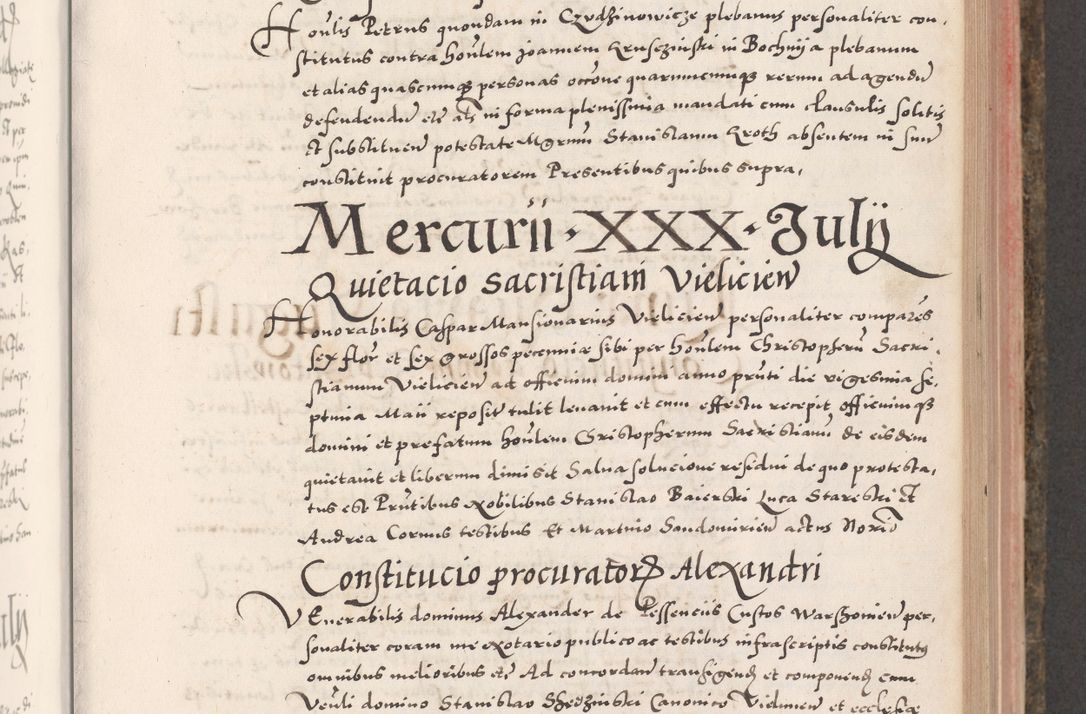 Honlis Petrus quondam in Czudzinowicze plebanus personaliter con,
stitutus contra honlem Joannem Krusczinski in Bochnija plebanum
et alias quascumq personas occone quarumcumq rerum ad agendu
defendendu etc als in forma plenissima mandati cum clausulis solitis
Et substituen potestate Mgrum Stanislaum Kroth absentem in suu
constituit procuratorem Presentibus quibus supra,
Mercurii · XXX · Julij
Quietacio Sacristiani Vielicien
Honorabilis Caspar Mansionarius Vielicien personaliter compares
sex flor et sex grossos pecuniæ sibi per honlem Christopheru Sacri,
stianum Vielicien ad officium domini anno pruti die vigesima se,
ptima Maii reposit tulit leuauit et cum effectu recepit officiumq
domini et prefatum honlem Christopherum Sacristianu de eisdem
quietauit et liberum dimisit Salua solucione residui de quo protesta,
tus est Prutibus Nobilibus Stanislao Baierski Luca Starеski Et
Andrea Cornus testibus Et Martino Sandomirien actus Norio
Constitucio procurator Alexandri
VEnerabilis dominus Alexander de Pessenciis Custos Warszouien per,
sonaliter coram me Notario publico ac testibus infrascriptis constitutq
omnibus melioribus etc Ad concordan transigend et componend cum
Venli domino Stanislao Dzedzinski Canonico Vielunen et ecclesiæ